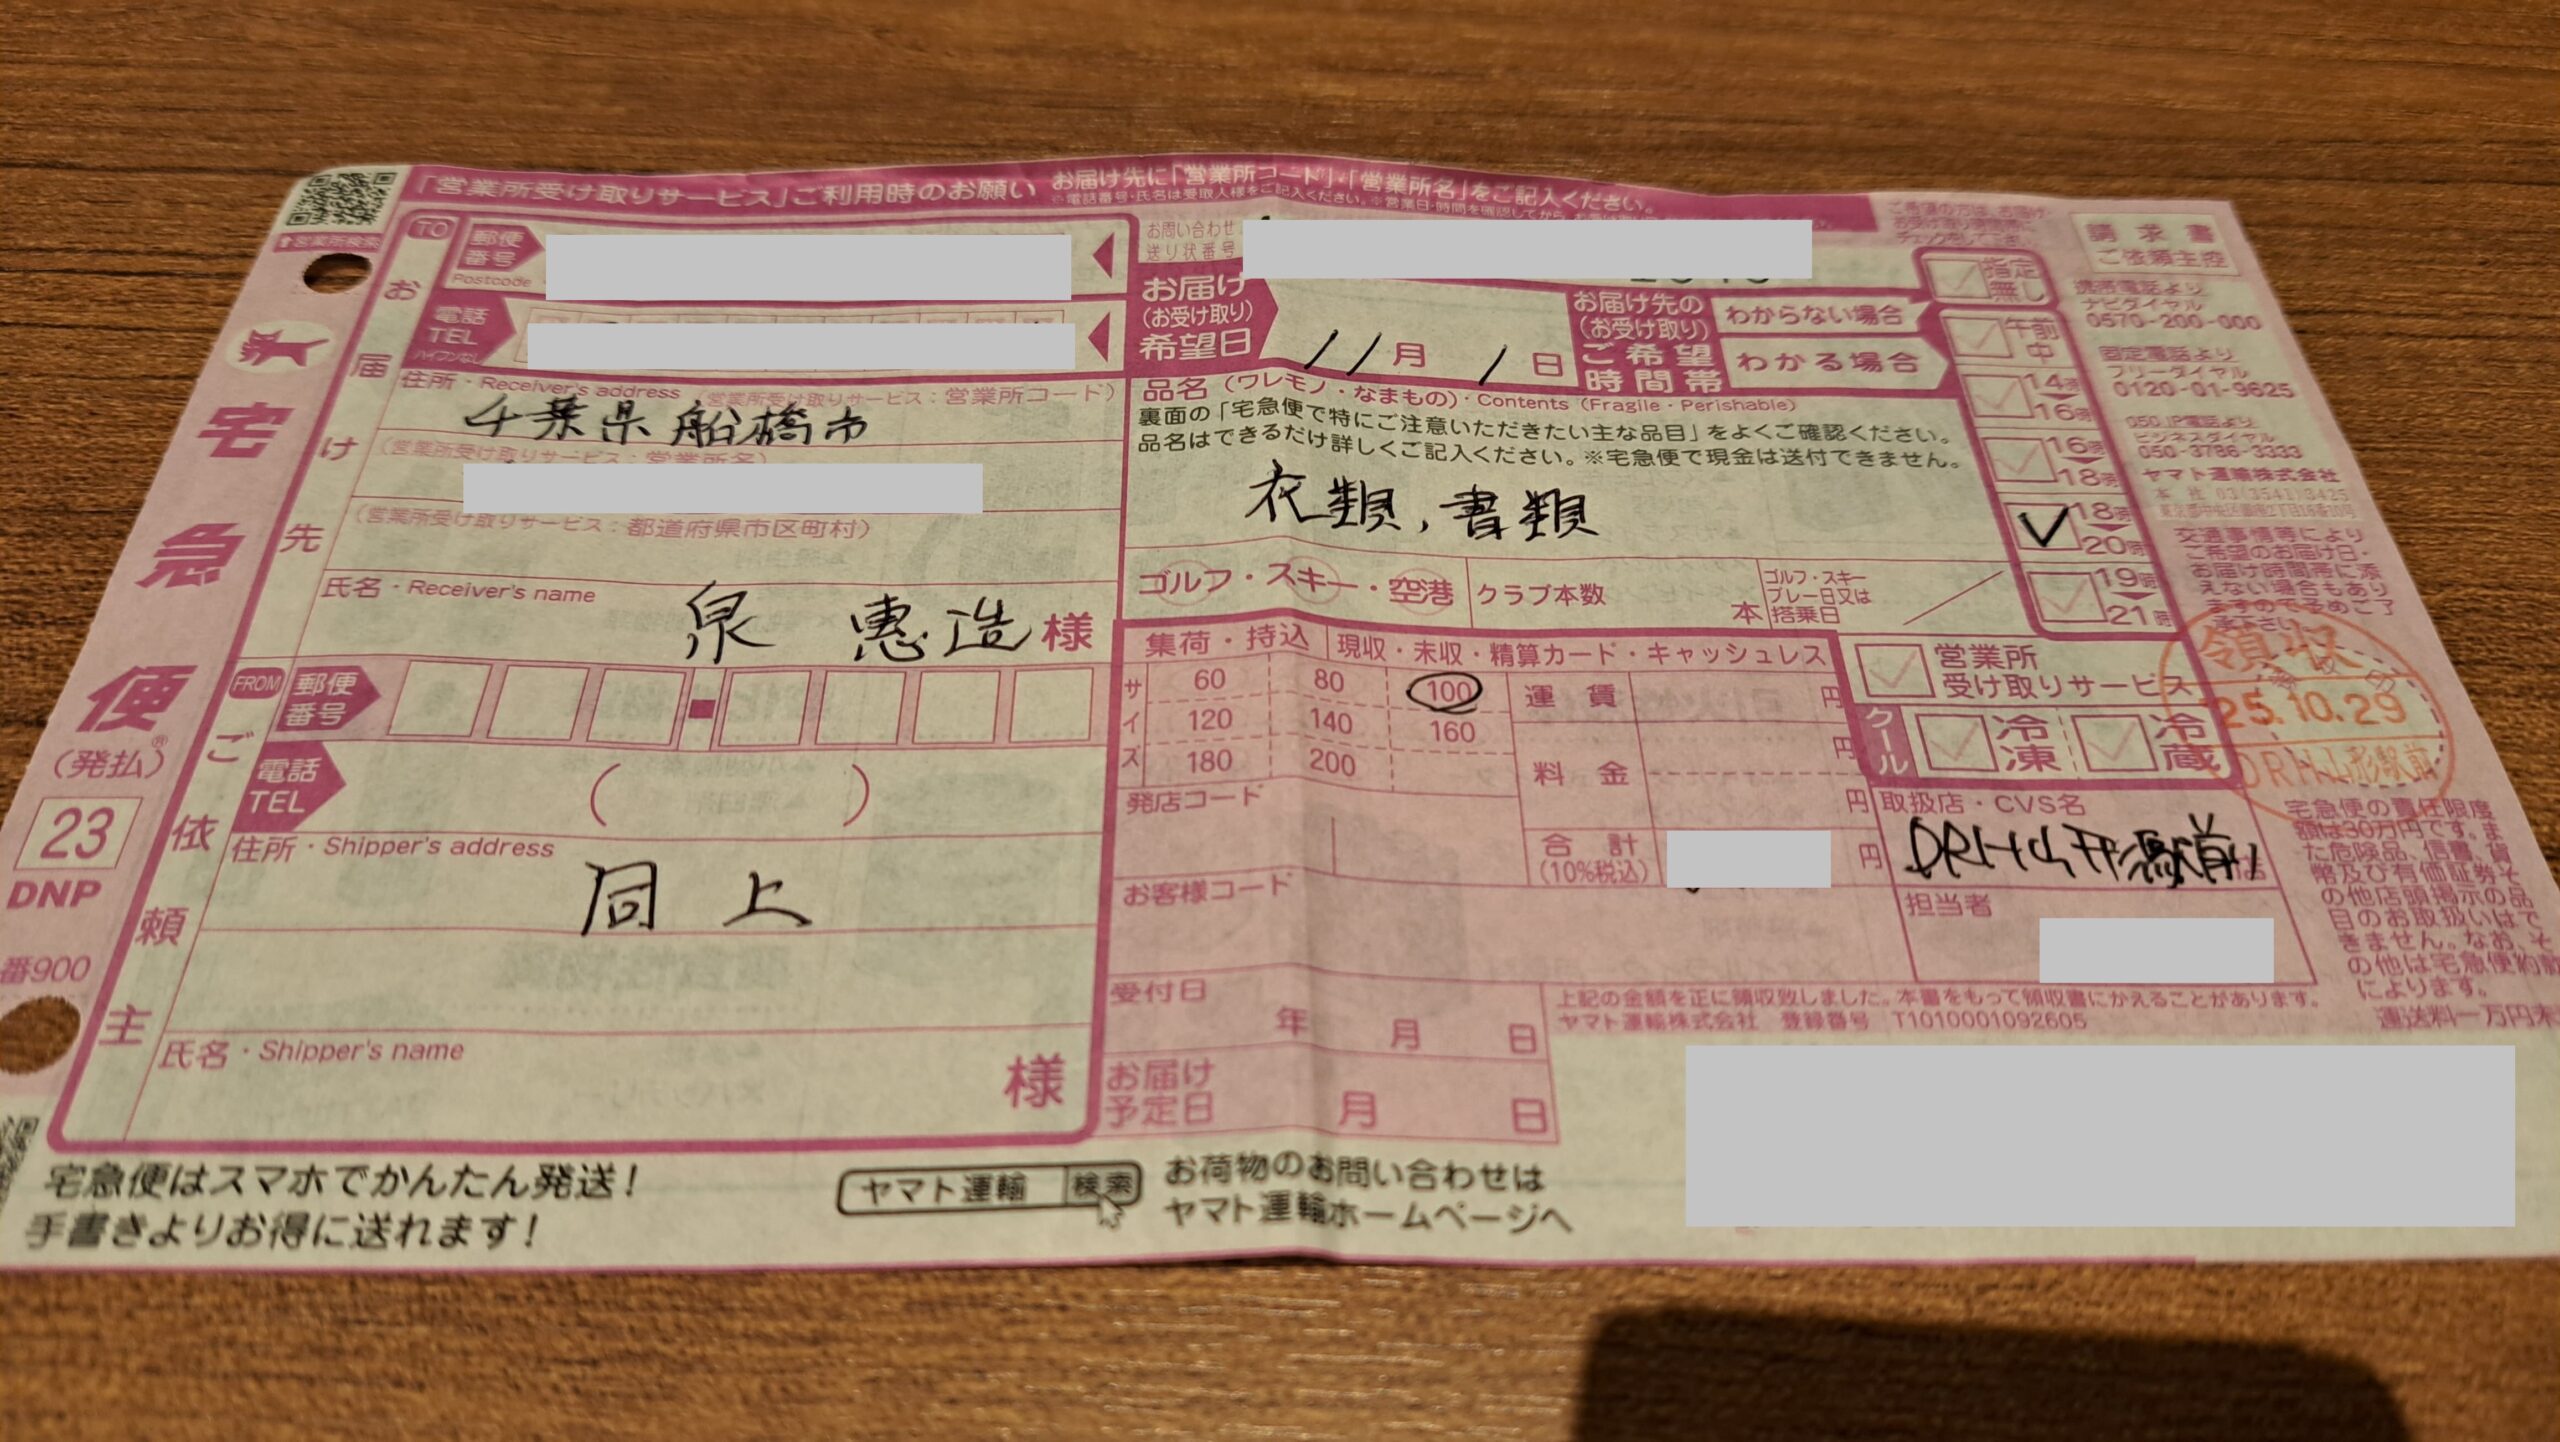 「営業所受け取りサービス」ご利用時のお願い お届け先に「営業所コード」・「営業所名」をご記入ください。
※電話番号・氏名は受取人様をご記入ください。※営業日・時間を確認してから、お
↑営業所検索
宅急便
(発払)®
23
DNP
番900
TO
お届け先
郵便番号
Postcode
電話
TEL
ハイフンなし
住所・Receiver's address (営業所受け取りサービス：営業所コード)
千葉県船橋市
(営業所受け取りサービス：営業所名)
(営業所受け取りサービス：都道府県市区町村)
氏名・Receiver's name
泉 恵造 様
FROM
ご依頼主
郵便番号
電話
TEL
( )
住所・Shipper's address
同上
氏名・Shipper's name
様
お問い合わせ
送り状番号
お届け
(お受け取り)
希望日
11月1日
お届け先の
(お受け取り)
ご希望
時間帯
わからない場合
わかる場合
指定無し
午前中
14時
16時
16時
18時
18時
20時
19時
21時
品名(ワレモノ・なまもの)・Contents (Fragile・Perishable)
裏面の「宅急便で特にご注意いただきたい主な品目」をよくご確認ください。
品名はできるだけ詳しくご記入ください。※宅急便で現金は送付できません。
衣類,書類
ゴルフ・スキー・空港
クラブ本数
本
ゴルフ・スキー
プレー日又は
搭乗日
集荷・持込
現収・未収・精算カード・キャッシュレス
サイズ
60 80 100
120 140 160
180 200
運賃 円
円
料金
円
合計
(10%税込)
円
発店コード
お客様コード
受付日
年 月 日
お届け
予定日
月 日
営業所
受け取りサービス
クール
冷凍
冷蔵
取扱店・CVS名
DRH山形駅前
店
担当者
領収
25.10.29
DRH山形駅前
上記の金額を正に領収致しました。本書をもって領収書にかえることがあります。
ヤマト運輸株式会社 登録番号 T1010001092605
請求書
ご依頼主控
携帯電話より
ナビダイヤル
0570-200-000
固定電話より
フリーダイヤル
0120-01-9625
050 IP電話より
ビジネスダイヤル
050-3786-3333
ヤマト運輸株式会社
本社 03(3541)3425
東京都中央区銀座2丁目16番10号
交通事情等により
ご希望のお届け日・
お届け時間帯に添
えない場合もあり
ますので予めご了
承下さい。
宅急便の責任限度
額は30万円です。ま
た危険品、信書、貨
幣及び有価証券そ
の他店頭掲示の品
目のお取扱いはで
きません。なお、そ
の他は宅急便約款
によります。
運送料一万円未
宅急便はスマホでかんたん発送！
手書きよりお得に送れます！
ヤマト運輸 検索
お荷物のお問い合わせは
ヤマト運輸ホームページへ